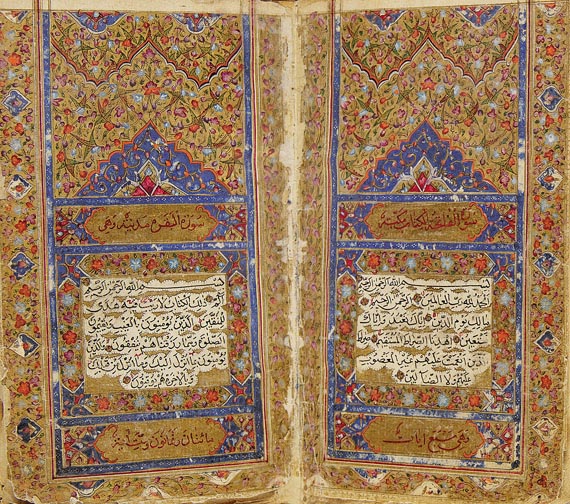 سورة الفاتحة الكتاب مكية
بسم الله الرحمن الرحيم
الحمد لله رب العالمين الرحمن الرحيم
مالك يوم الدين اياك نعبد واياك
نستعين اهدنا الصراط المستقيم صراط
الذين انعمت عليهم غير المغضوب
عليهم ولا الضالين
وهي سبع ايات
سورة البقرة مدنية وهي
بسم الله الرحمن الرحيم
الم ذلك الكتاب لا ريب فيه هدى
للمتقين الذين يؤمنون بالغيب ويقيمون
الصلوة ومما رزقناهم ينفقون والذين
يؤمنون بما انزل اليك وما انزل من قبلك
وبالاخرة هم يوقنون
مائتان وثمانون و